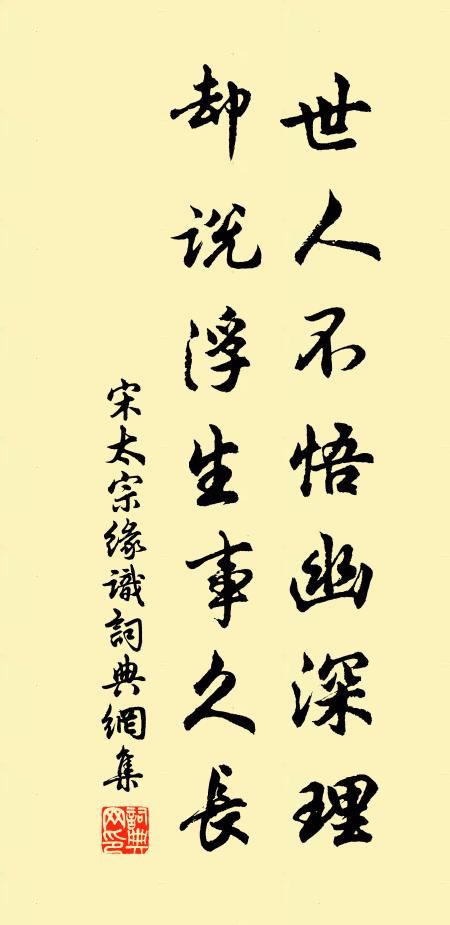 世人不悟幽深理
却説浮生事久長
宋太宗緣識詞典網集
詞典網印